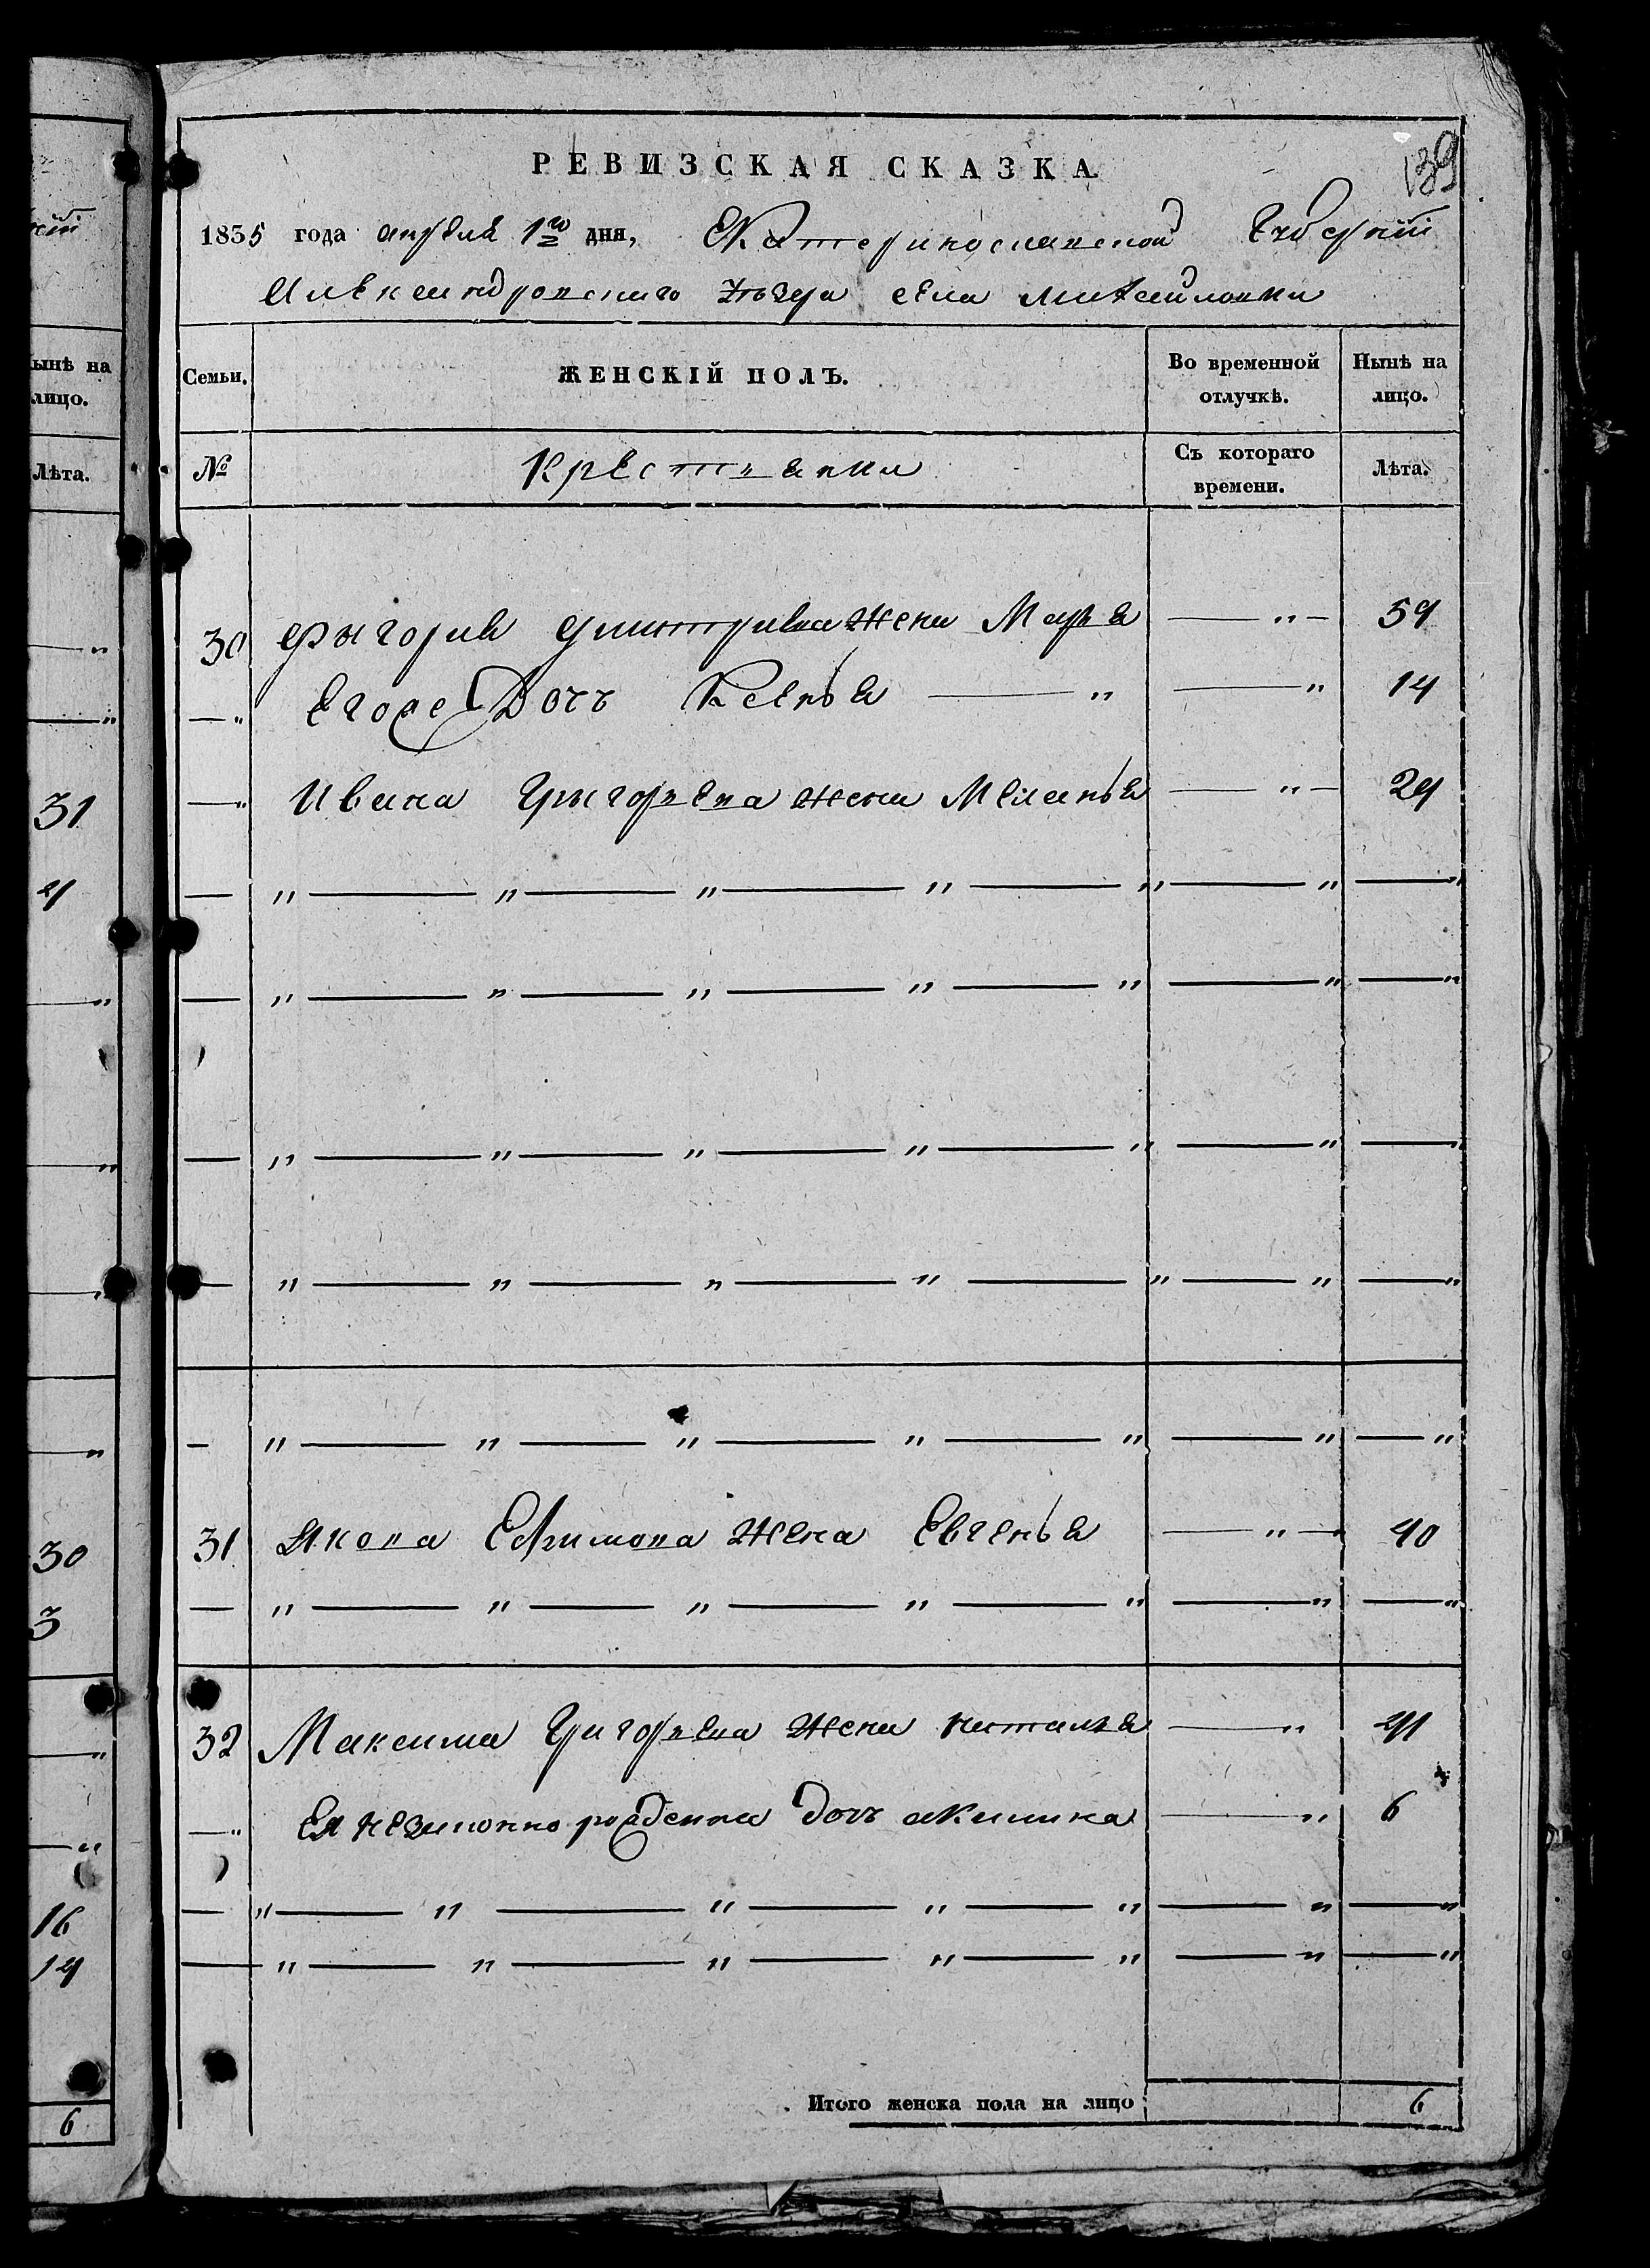 ынѣ на
лицо.
Лѣта.
31
4
30
3
16
14
6
139
РЕВИЗСКАЯ СКАЗКА
1835 года апреля 1го дня, Екатеринославской Губерніи
Александровскаго уѣзда села Михайловки
Семьи. ЖЕНСКІЙ ПОЛЪ. Во временной отлучкѣ. Нынѣ на лицо.
№ Крестьянки Съ котораго времени. Лѣта.
30 Григория Дмитриева жена Марья — " — 59
— " Егоже Дочь Ксенья — " — " 14
— " Ивана Григорьева жена Меланья — " — 24
— " — " — " — " — " — " — "
— " — " — " — " — " — " — "
— " — " — " — " — " — " — "
— " — " — " — " — " — " — "
— " — " — " — " — " — " — "
31 Якова Ефимова жена Евгенья — " — 40
— " — " — " — " — " — " — "
32 Максима Григорьева жена Наталья — " 41
— " Ея незаконно рожденна дочь акилина — " 6
— " — " — " — " — " — " — "
— " — " — " — " — " — " — "
Итого женска пола на лицо 6